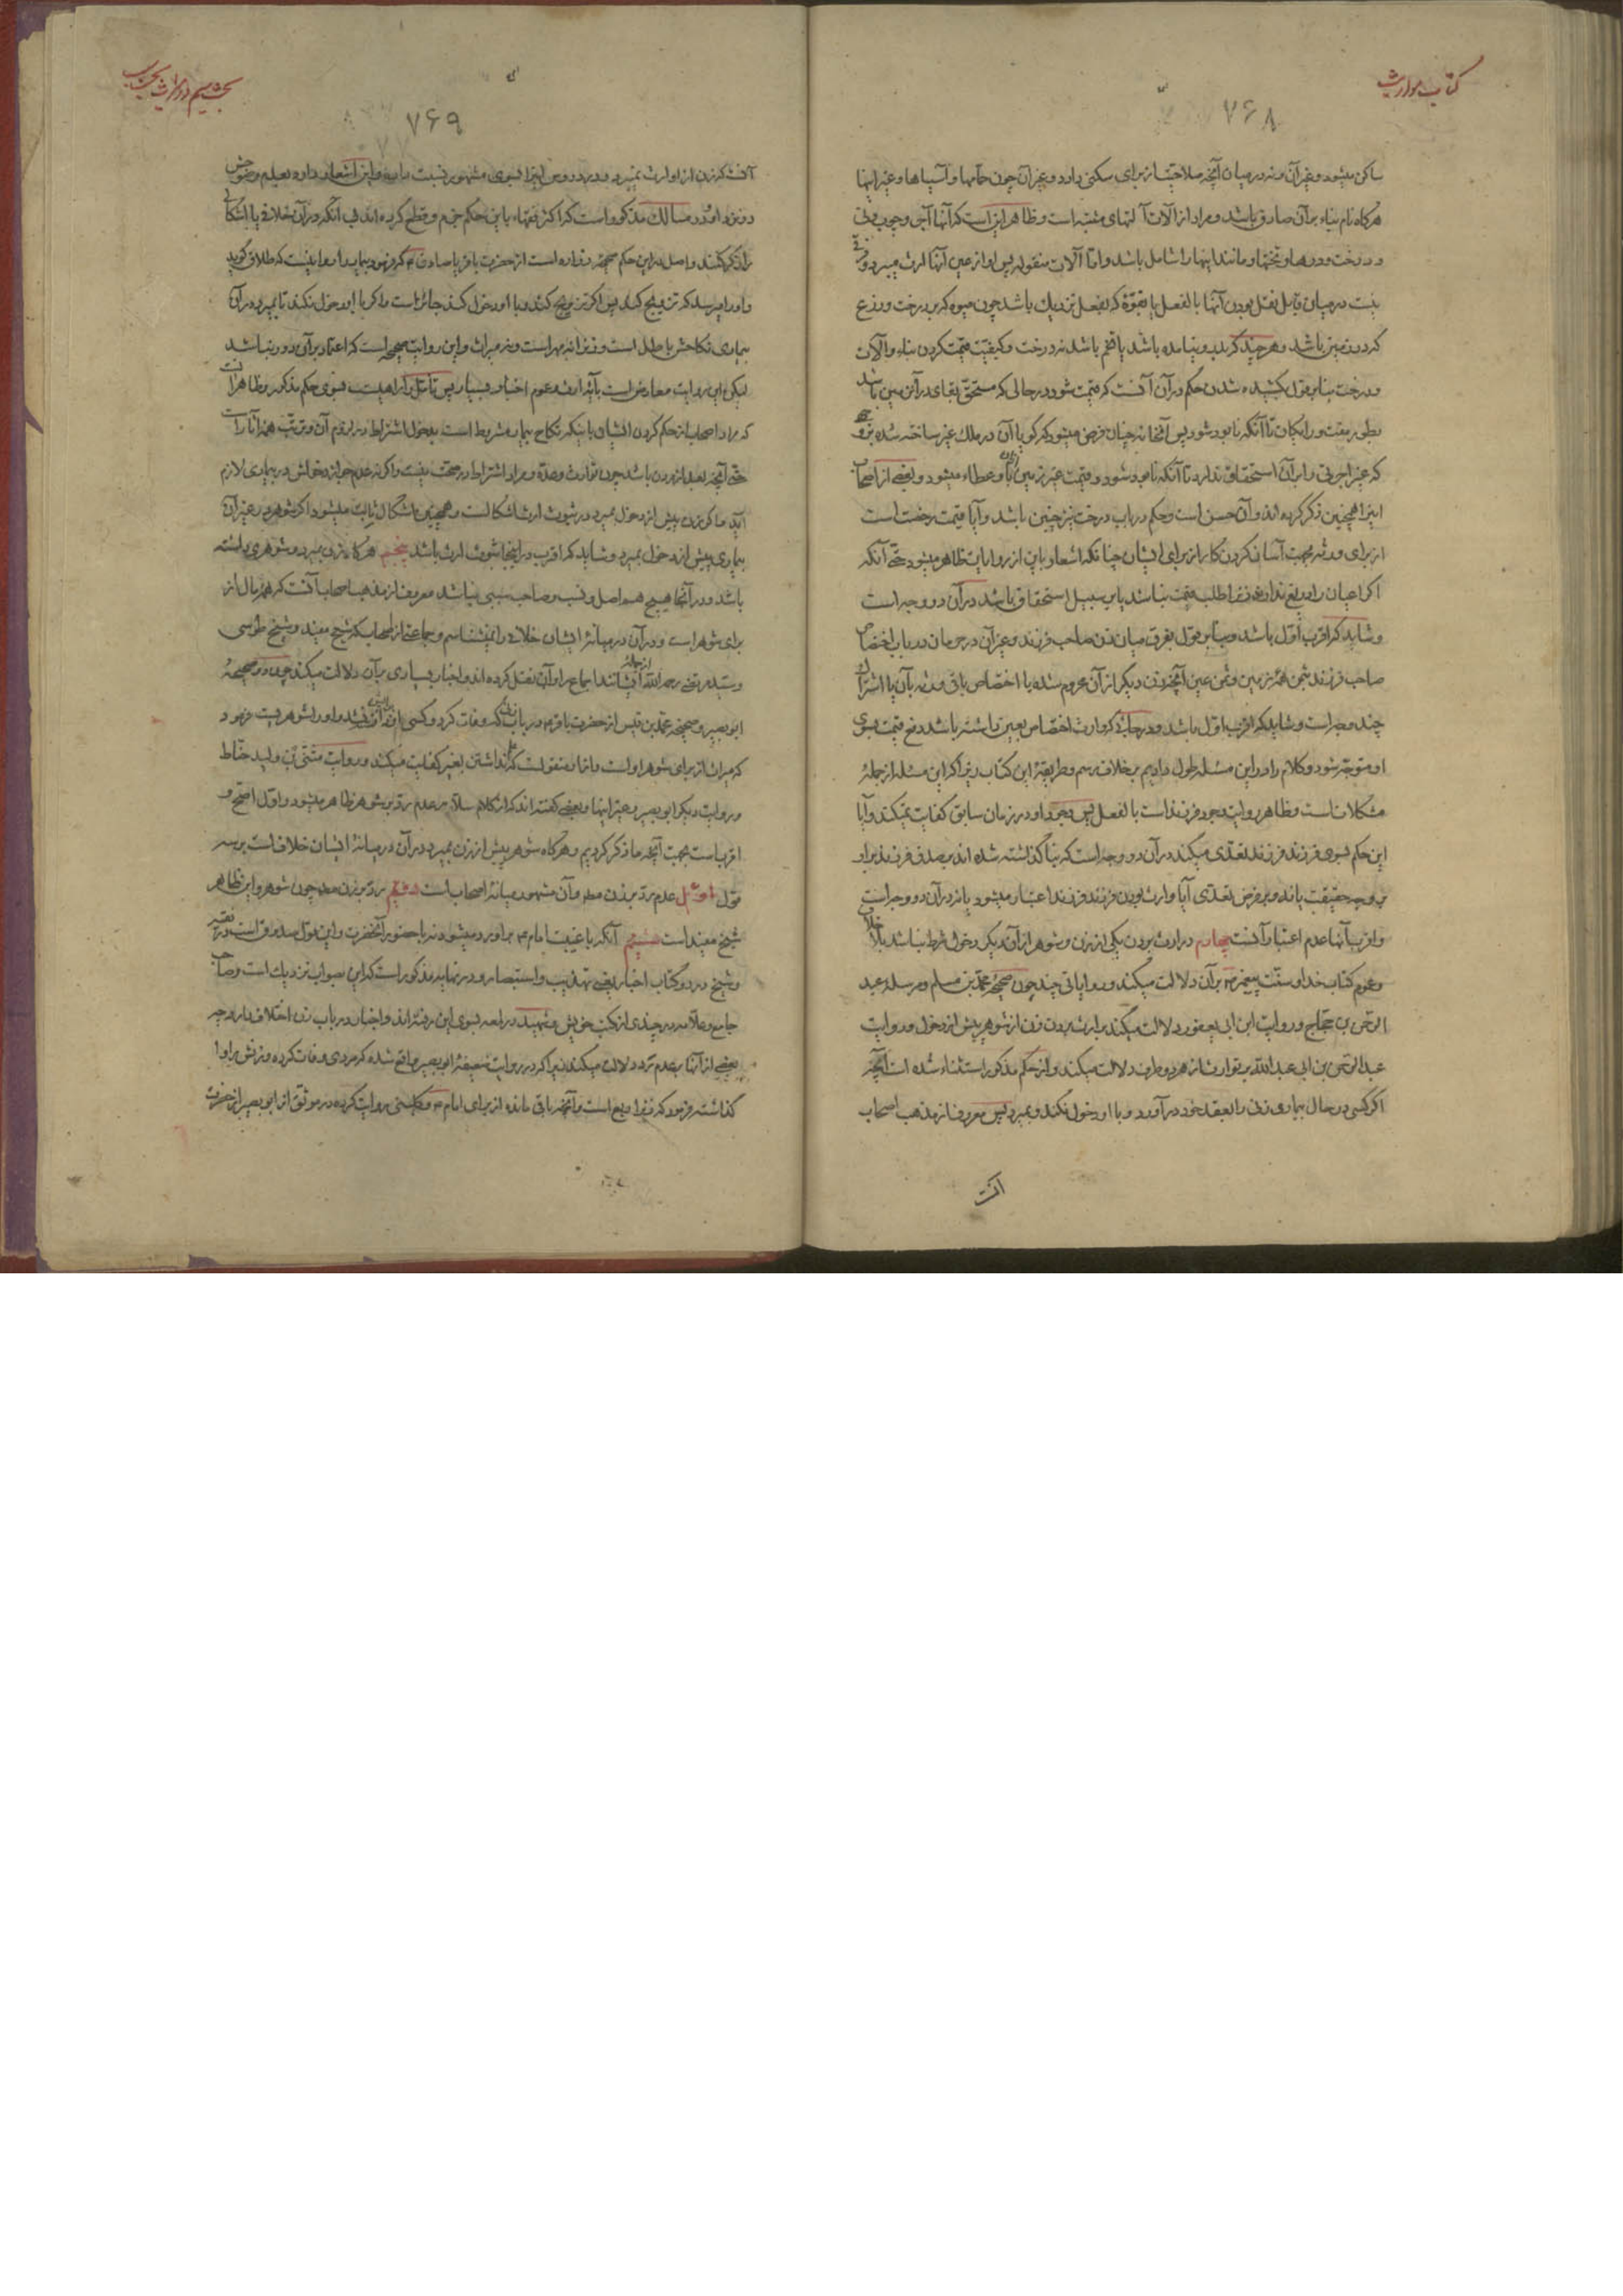 کتاب مواریث
۷۶۸
ساکن میشود و غیر آن و نه در میان آنچه صلاحیت از برای سکنی دارد و غیر آن چون حمامها و آسیاها و غیر اینها
هرگاه نام بناء بر آن صادق باشد و مراد از آلات آلتهای مثبته است و ظاهر این است که آنها آجر و چوب
و درخت و درها و تختها و مانند اینها را شامل باشد و اما آلات منقوله پس او از عین آنها ارث میبرد و فرقی
نیست در میان قابل نقل بودن آنها بالفعل یا بقوة که بفعل نزدیک باشد چون میوه که بر درخت و زرع
که در زمین باشد و هر چند که بدرو نیامده باشد یا تخم باشد نه درخت و کیفیت قیمت کردن بناء و آلات
و درخت بنابر قول کشیده شدن حکم در آن آنست که قیمت شود در حالی که مستحق بقای در آن زمین باشد
بطور مفت و رایگان تا آنکه نابود شود پس آنخانه چنان فرض میشود که گویا آن در ملک غیر ساخته شده
که غیر اجرتی را بر آن استحقاق ندارد تا آنکه نابود شود و قیمت غیر زمین بآن زن عطاء میشود و بعضی از اصحاب
اینرا همچنین ذکر کرده اند و آن حسن است و حکم در باب درخت نیز چنین باشد و آیا قیمت رخصت است
از برای ورثه بجهت آسان کردن کار از برای ایشان چنانکه اشعار باین از روایات ظاهر میشود حتی آنکه
اگر اعیان را بدهند زن را طلب قیمت نباشد یا بر سبیل استحقاق باشد در آن دو وجه است
و شاید که اقرب اول باشد و بنابر قول بفرق میان زن صاحب فرزند و غیر آن در حرمان در باب اختصاص
صاحب فرزند بثمن همه زمین و ثمن عین آنچه زن دیگر از آن محروم شده یا اختصاص باقی ورثه بآن یا اشتراک
چند وجه است و شاید که اقرب اول باشد و در جائی که وارث اختصاص بعین داشته باشد دفع قیمت بسوی
او متوجه شود و کلام را در این مسئله طول دادیم بر خلاف رسم و طریقۀ این کتاب زیرا که این مسئله از جملۀ
مشکلات است و ظاهر روایت وجود فرزند است بالفعل پس وجود او در زمان سابق کفایت نمیکند و آیا
این حکم بسوی فرزند فرزند تعدی میکند در آن دو وجه است که بنا گذاشته شده اند بر صدق فرزند بر او
بر وجه حقیقت یا نه و بر فرض تعدی آیا وارث بودن فرزند فرزند اعتبار میشود یا نه در آن دو وجه است
و اقرب آنها عدم اعتبار آنست چهارم در ارث بردن یکی از زن و شوهر از آن دیگر دخول شرط نباشد بلا خلاف
و عموم کتاب خدا و سنت پیغمبر ص بر آن دلالت میکند و روایاتی چند چون صحیحه محمد بن مسلم و مرسله عبد
الرحمن بن حجاج و روایت ابن ابی یعفور دلالت میکند بر ارث بردن زن از شوهر پیش از دخول و روایت
عبد الرحمن بن ابی عبد الله بر توارث از هر دو طرف دلالت میکند و از حکم مذکور استثناء شده است آنچه
اگر کسی در حال بیماری زنی را بعقد خود در آورد و با او دخول نکند و بمیرد پس معروف از مذهب اصحاب
آنست
۷۶۹
آنست که زن از او ارث نمیبرد و در دروس اینرا بسوی مشهور نسبت داده و این اشعار دارد بعدم وضوحش
در نزد او و در مسالک مذکور است که اکثر فقهاء باین حکم جزم و قطع کرده اند بی آنکه در آن خلافی یا اشکالی
را ذکر کنند و اصل در این حکم صحیحه زراره است از حضرت باقر یا صادق ع که فرمود بیمار را روا نیست که طلاق گوید
و او را میرسد که تزویج کند پس اگر تزویج کند و با او دخول کند جائز است و اگر با او دخول نکند تا بمیرد در آن
بیماری نکاحش باطل است و زن را نه مهر است و نه میراث و این روایت صحیحه است که اعتماد بر آن دور نباشد
لیکن این روایت معارض است بآیۀ ارث و عموم اخبار بسیار پس تأمل را راهیست بسوی حکم مذکور و ظاهر آنست
که مراد اصحاب از حکم کردن ایشان باینکه نکاح بیمار مشروط است بدخول اشتراط در لزوم آن و ترتب همه آثار است
حتی آنچه بعد از مردن باشد چون توارث و عده و مراد اشتراط در صحت نیست و اگر نه عدم جواز دخولش در بیماری لازم
آید و اگر زن پیش از دخول بمیرد در ثبوت ارث اشکالست و همچنین اشکال ثابت میشود اگر شوهر در غیر آن
بیماری پیش از دخول بمیرد و شاید که اقرب در اینجا ثبوت ارث باشد پنجم هرگاه زن بمیرد و شوهری داشته
باشد و در آنجا هیچ اصل و نسب و صاحب سببی نباشد معروف از مذهب اصحاب آنست که همه مال از
برای شوهر است و در آن در میانۀ ایشان خلافی را نمیشناسم و جماعتی از اصحاب که شیخ مفید و شیخ طوسی
و سید مرتضی رحمه الله از جمله ایشانند اجماع را بر آن نقل کرده اند و اخبار بسیاری بر آن دلالت میکند چون دو صحیحۀ
ابو بصیر و صحیحۀ محمد بن قیس از حضرت باقر ع در باب زنی که وفات کرد و کسی از برای او دانسته نشد و او را شوهریست فرمود
که میراث از برای شوهر اوست
و روایت دیگر ابو بصیر و غیر اینها و بعضی گفته اند که از کلام سلار عدم رد بر شوهر ظاهر میشود و اول اصح و
اقرب است بجهت آنچه ما ذکر کردیم و هرگاه شوهر پیش از زن بمیرد در آن در میانۀ ایشان خلاف است بر سه
قول اول عدم رد بر زن مطلقا و آن مشهور میانۀ اصحاب است دویم رد بر زن مطلقا چون شوهر و این ظاهر
شیخ مفید است سیم آنکه با غیبت امام ع بر او رد میشود نه با حضور آنحضرت و این قول صدوق است در فقیه
و شیخ در دو کتاب اخبار یعنی تهذیب و استبصار و در نهایه مذکور است که این بصواب نزدیک است و صاحب
جامع و علامه در چندی از کتب خویش و شهید در لمعه بسوی این رفته اند و اخبار در باب زن اختلاف دارد چه
بعضی از آنها بعدم رد دلالت میکند زیرا که در روایت ضعیفۀ ابو بصیر واقع شده که مردی وفات کرده و زنش را وا
گذاشته فرمود که زن را ربع است و آنچه باقی مانده از برای امام ع و کلینی روایت کرده در موثق از ابو بصیر از حضرت